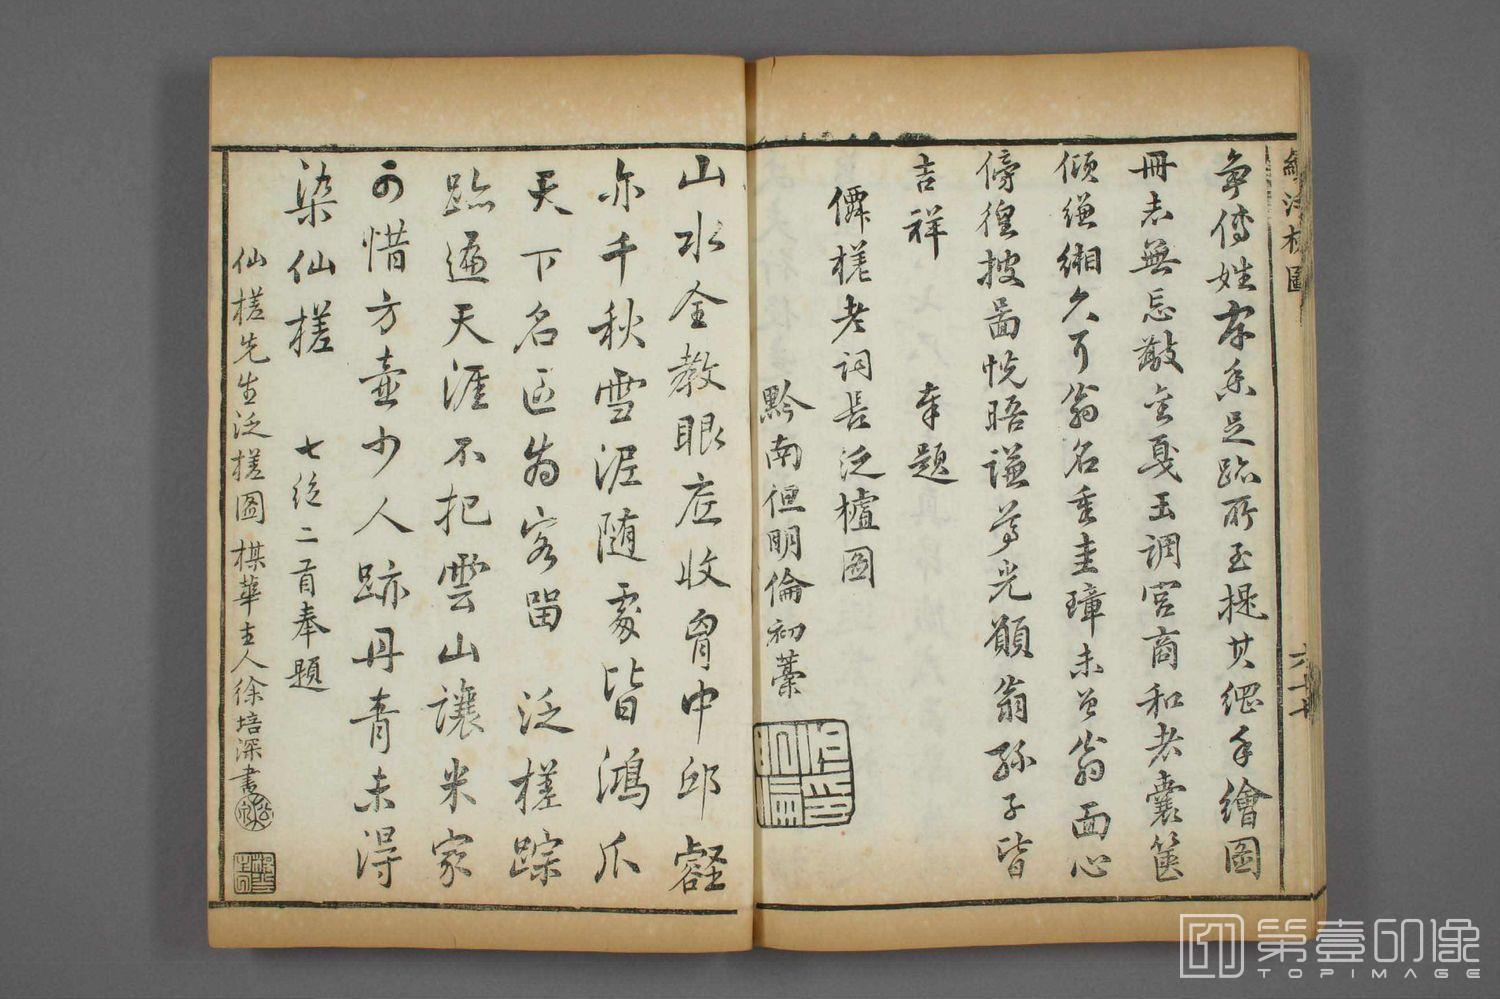 爭傳姓字系足跡所至提其綱手繪圖
冊志無忘敲金戛玉調宮商和老囊篋
傾縑緗久耳翁名重圭璋未見翁面心
傍徨披圖恍晤謙尊光願翁孫子皆
吉祥 奉題
僊槎老詞長泛槎圖
黔南但明倫初藁
山水全教眼底收胷中邱壑
亦千秋雪泥隨處皆鴻爪
天下名區為客留 泛槎蹤
跡遍天涯不把雲山讓米家
可惜方壺少人跡丹青未得
染仙槎 七絕二首奉題
仙槎先生泛槎圖 棋華主人徐培深書
第壹印像
TOPIMAGE